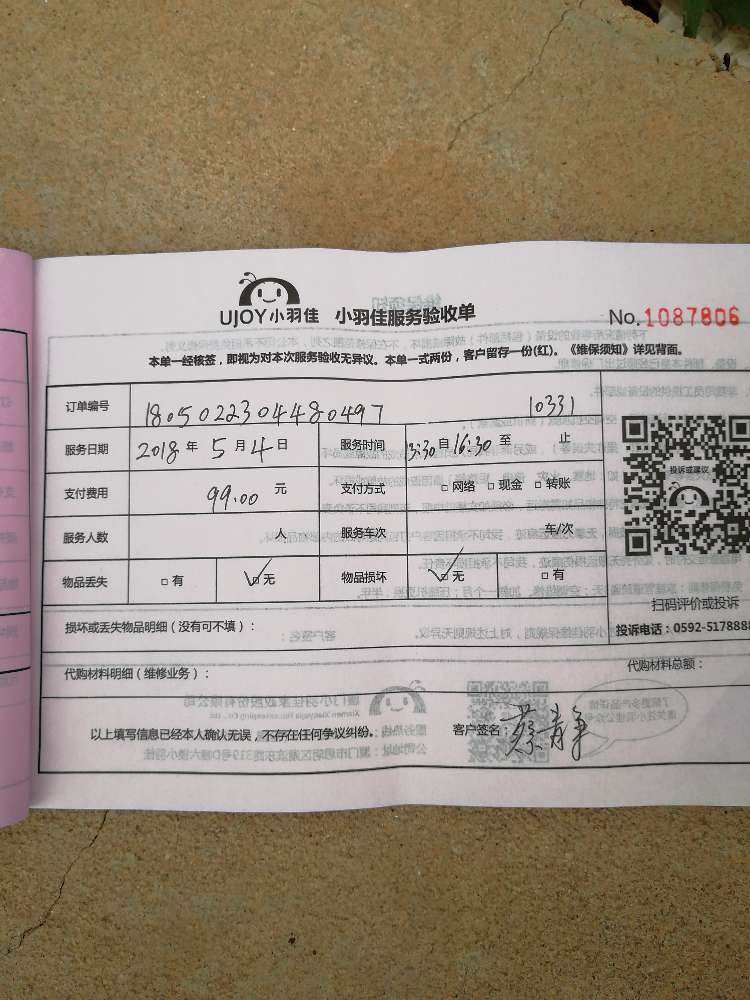 UJOY小羽佳 小羽佳服务验收单 No.1087806
本单一经核签，即视为对本次服务验收无异议。本单一式两份，客户留存一份(红)。《维保须知》详见背面。
订单编号 1805022304480497 10331
服务日期 2018 年 5 月 4 日 服务时间 13:30 自 16:30 至 止
支付费用 99.00 元 支付方式 □网络 □现金 □转账
服务人数 人 服务车次 车/次
物品丢失 □有 □无 物品损坏 □无 □有
投诉或建议
扫码评价或投诉
投诉电话：0592-5178888
损坏或丢失物品明细（没有可不填）：
代购材料明细（维修业务）： 代购材料总额：
以上填写信息已经本人确认无误，不存在任何争议纠纷。 客户签名：蔡青争